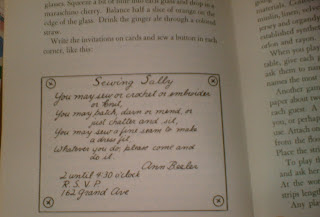 glasses. Squeeze a bit of lime into each glass and drop in a
maraschino cherry. Balance half a slice of orange on the
edge of the glass. Drink the ginger ale through a colored
straw.
Write the invitations on cards and sew a button in each
corner, like this:
Sewing Sally
You may sew or crochet or embroider
or knit,
You may patch, darn or mend, or
just chatter and sit,
You may sew a fine seam to make
a dress fit,
Whatever you do, please come and
do it.
Ann Beeler
2 until 4:30 o'clock
R.S.V.P.
162 Grand Ave
When you
table, give each
ask them to
names the most
Another game
paper about two
each guest. A
yes, or perhaps
out. Attach one
from the floor
Place the
To play
and ask her
At the
strips length
Any